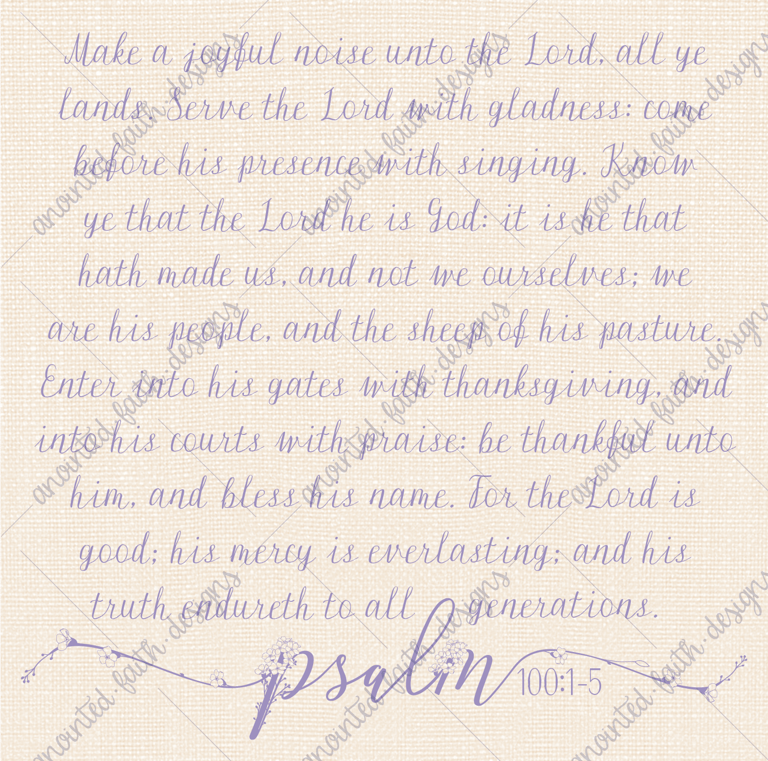 Make a joyful noise unto the Lord, all ye
lands. Serve the Lord with gladness: come
before his presence with singing. Know
ye that the Lord he is God: it is he that
hath made us, and not we ourselves; we
are his people, and the sheep of his pasture.
Enter into his gates with thanksgiving, and
into his courts with praise: be thankful unto
him, and bless his name. For the Lord is
good; his mercy is everlasting; and his
truth endureth to all generations.
psalm 100:1-5
anointed.faith.designs
anointed.faith.designs
anointed.faith.designs
anointed.faith.designs
anointed.faith.designs
anointed.faith.designs
anointed.faith.designs
anointed.faith.designs
anointed.faith.designs